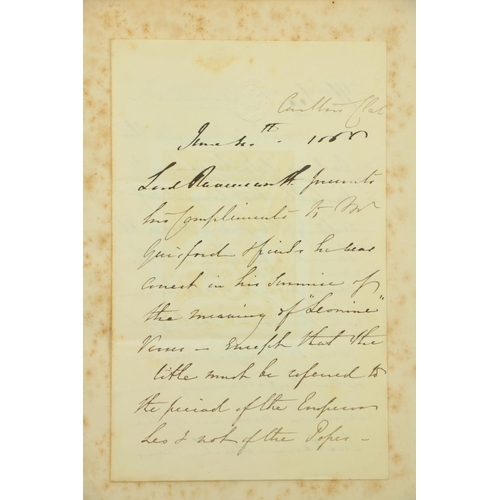 Carlton Club
June 30th - 1868
Lord Ravensworth presents
his Compliments to Mr
Guilford & finds he was
correct in his surmise of
the meaning of "Leonine"
Verses - Except that the
title must be referred to
the period of the Emperor
Leo & not of the Popes -